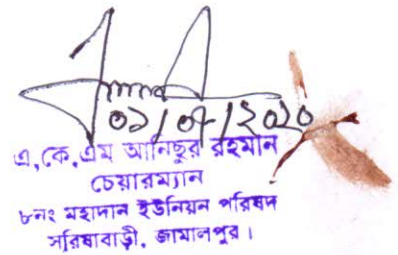 ০১/০৭/২০২০
এ,কে,এম আনিছুর রহমান
চেয়ারম্যান
৮নং মহাদান ইউনিয়ন পরিষদ
সরিষাবাড়ী, জামালপুর।